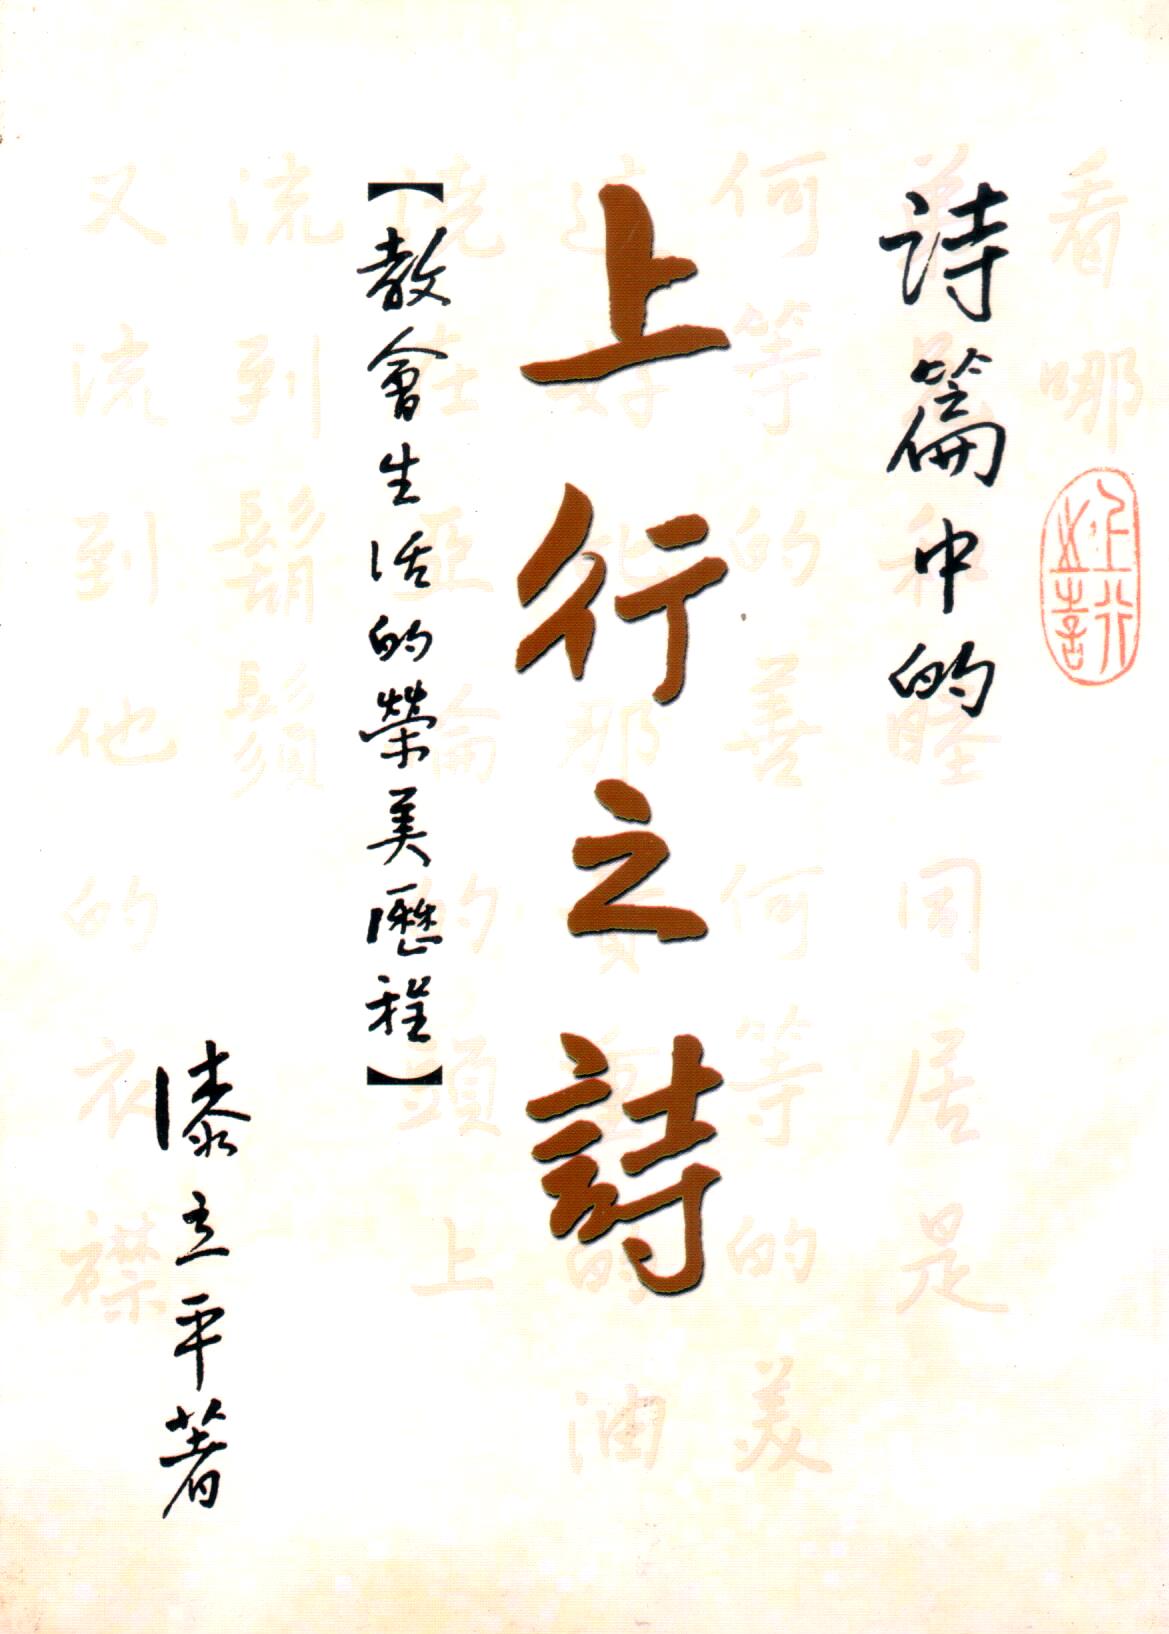 看哪
弟兄和睦同居是
何等的善何等的美
這好比那貴重的油
澆在亞倫的頭上
流到鬍鬚
又流到他的衣襟
上行之詩
詩篇中的
上行之詩
【教會生活的榮美歷程】
漆立平著